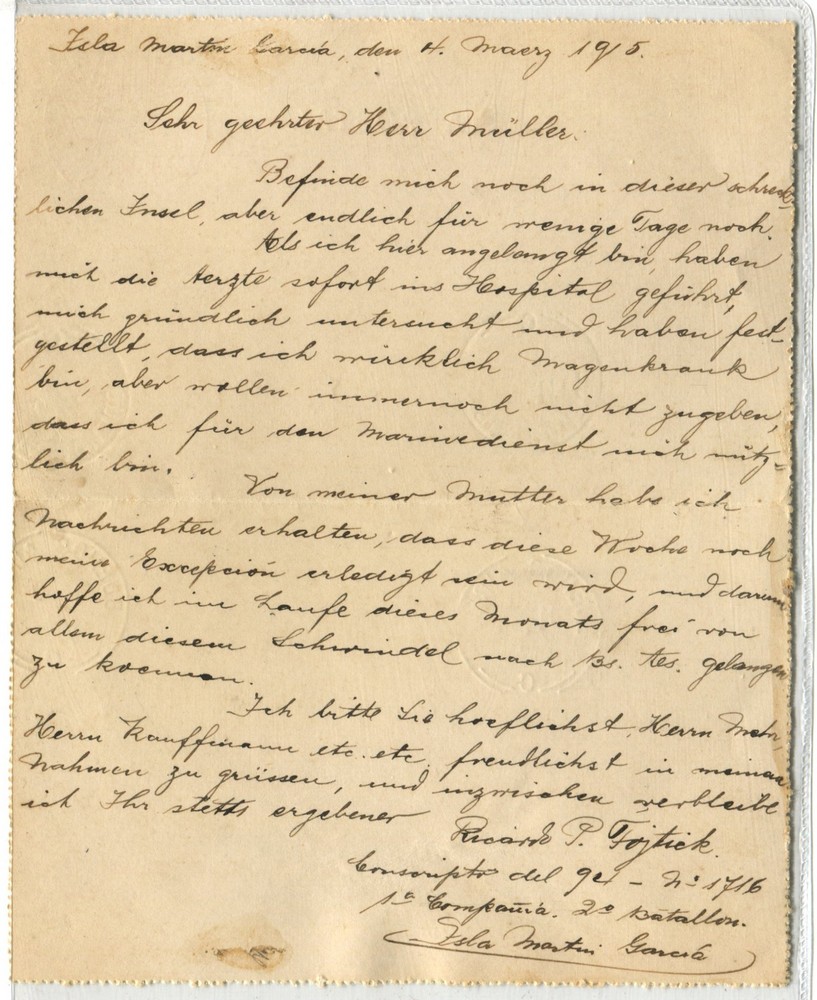 Isla Martin Garcia, den 4. Maerz 1915.
Sehr geehrter Herr Müller.
Befinde mich noch in dieser schreck-
lichen Insel, aber endlich für wenige Tage noch.
Als ich hier angelangt bin, haben
mich die Aerzte sofort ins Hospital geführt,
mich gründlich untersucht und haben fest-
gestellt, dass ich wirklich Magenkrank
bin, aber wollen immernoch nicht zugeben,
dass ich für den Marinedienst nich nütz-
lich bin.
Von meiner Mutter habe ich
Nachrichten erhalten, dass diese Woche noch
meine Excepción erledigt sein wird, und darum
hoffe ich im Laufe dieses Monats frei von
allem diesem Schwindel nach Bs. As. gelangen
zu koennen.
Ich bitte Sie hoeflichst, Herrn
Herrn Kauffmann etc. etc. freundlichst in meinem
Nahmen zu grüssen, und inzwischen verbleibe
ich Ihr stetts ergebener
Ricardo P. Fojtick.
Conscripto del 94 - No 1716
1a Compañia. 2o Batallon.
Isla Martin Garcia